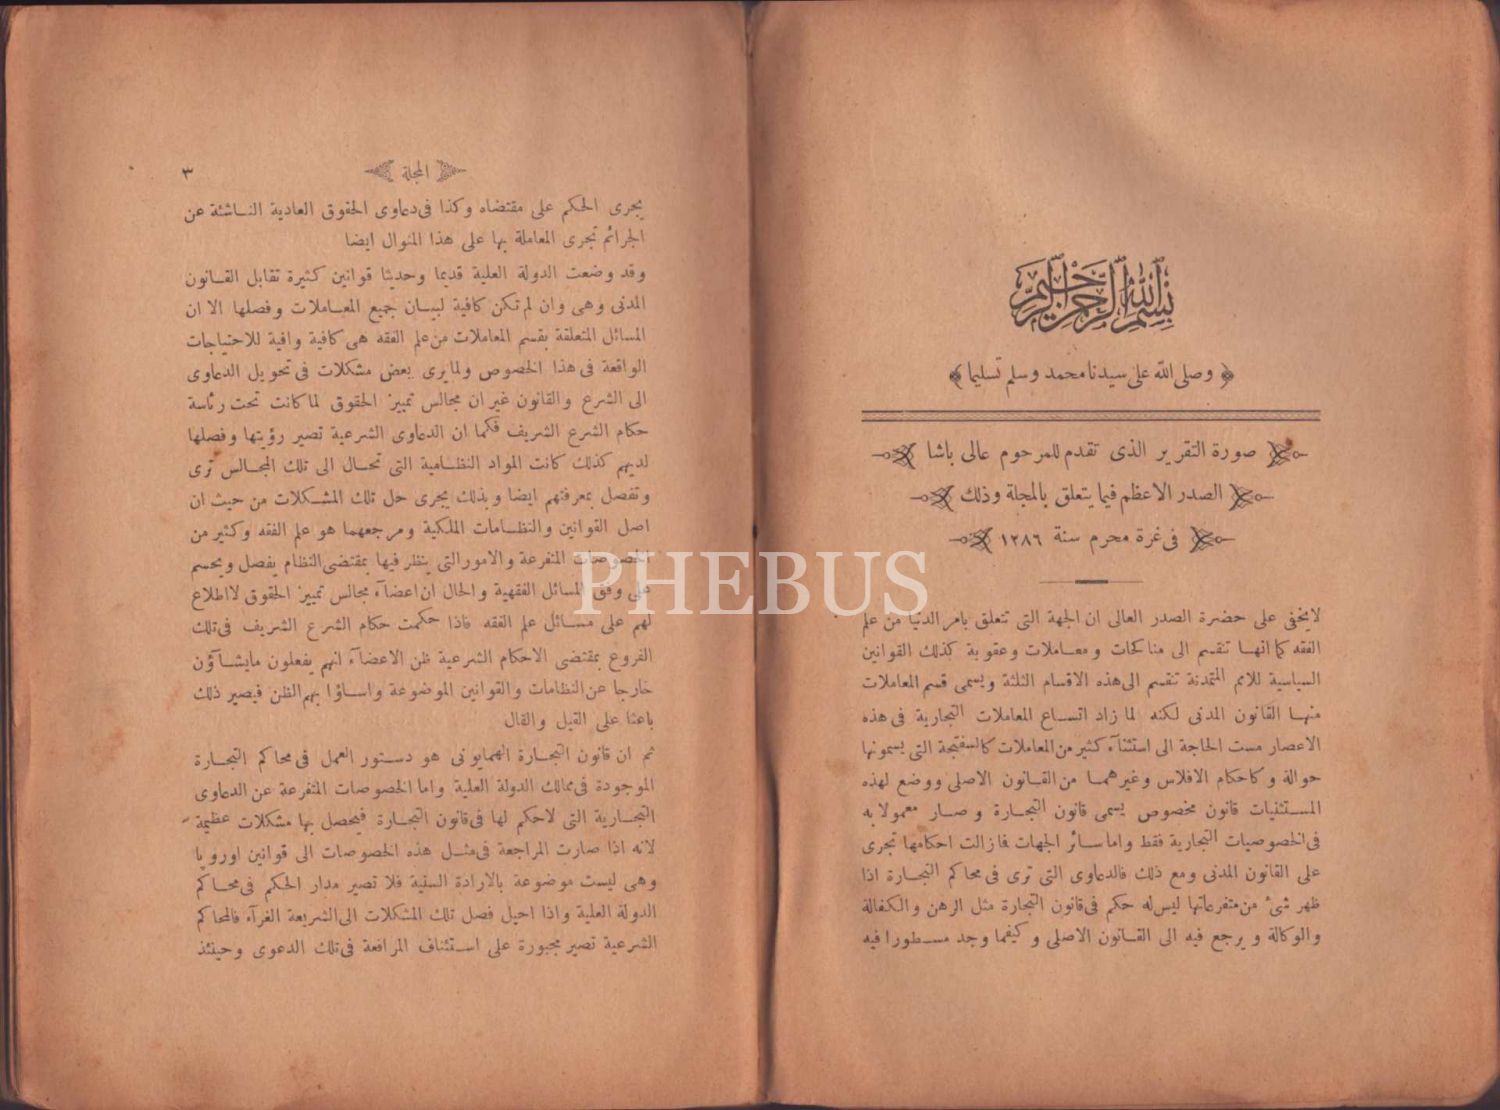 بسم الله الرحمن الرحيم
﴿ وصلى الله على سيدنا محمد وسلم تسليما ﴾
صورة التقرير الذى تقدم للمرحوم عالى باشا
الصدر الاعظم فيما يتعلق بالمجلة وذلك
فى غرة محرم سنة ١٢٨٦
لا يخفى على حضرة الصدر العالى ان الجهة التى تتعلق بامر الدنيا من علم
الفقه كما انها تنقسم الى مناكحات ومعاملات وعقوبة كذلك القوانين
السياسية للامم المتمدنة تنقسم الى هذه الاقسام الثلثة ويسمى قسم المعاملات
منها القانون المدنى لكنه لما زاد اتساع المعاملات التجارية فى هذه
الاعصار مست الحاجة الى استثنآء كثير من المعاملات كالسفتجة التى يسمونها
حوالة وكاحكام الافلاس وغيرهما من القانون الاصلى ووضع لهذه
المستثنيات قانون مخصوص يسمى قانون التجارة وصار معمولا به
فى الخصوصيات التجارية فقط واما سائر الجهات فازالت احكامها تجرى
على القانون المدنى ومع ذلك فالدعاوى التى ترى فى محاكم التجارة اذا
ظهر شئ من متفرعاتها ليس له حكم فى قانون التجارة مثل الرهن والكفالة
والوكالة ويرجع فيه الى القانون الاصلى وكيفما وجد مسطورا فيه
المجلة
٣
يجرى الحكم على مقتضاه وكذا فى دعاوى الحقوق العادية الناشئة عن
الجرائم تجرى المعاملة بها على هذا المنوال ايضا
وقد وضعت الدولة العلية قديما وحديثا قوانين كثيرة تقابل القانون
المدنى وهى وان لم تكن كافية لبيان جميع المعاملات وفصلها الا ان
المسائل المتعلقة بقسم المعاملات من علم الفقه هى كافية وافية للاحتياجات
الواقعة فى هذا الخصوص ولما يرى بعض مشكلات فى تحويل الدعاوى
الى الشرع والقانون غير ان مجالس تمييز الحقوق لما كانت تحت رئاسة
حكام الشرع الشريف فكما ان الدعاوى الشرعية تصير رؤيتها وفصلها
لديهم كذلك كانت المواد النظامية التى تحال الى تلك المجالس ترى
وتفصل بمعرفتهم ايضا وبذلك يجرى حل تلك المشكلات من حيث ان
اصل القوانين والنظامات الملكية ومرجعهما هو علم الفقه وكثير من
الخصوصات المتفرعة والامور التى ينظر فيها بمقتضى النظام يفصل ويحسم
على وفق المسائل الفقهية والحال ان اعضآء مجالس تمييز الحقوق لا اطلاع
لهم على مسائل علم الفقه فاذا حكمت حكام الشرع الشريف فى تلك
الفروع بمقتضى الاحكام الشرعية ظن الاعضآء انهم يفعلون ما يشاؤن
خارجا عن النظامات والقوانين الموضوعة واساؤا بهم الظن فيصير ذلك
باعثا على القيل والقال
ثم ان قانون التجارة الهمايونى هو دستور العمل فى محاكم التجارة
الموجودة فى ممالك الدولة العلية واما الخصوصات المتفرعة عن الدعاوى
التجارية التى لا حكم لها فى قانون التجارة فيحصل بها مشكلات عظيمة
لانه اذا صارت المراجعة فى مثل هذه الخصوصات الى قوانين اوروپا
وهى ليست موضوعة بالارادة السنية فلا تصير مدار الحكم فى محاكم
الدولة العلية واذا احيل فصل تلك المشكلات الى الشريعة الغرآء فالمحاكم
الشرعية تصير مجبورة على استئناف المرافعة فى تلك الدعوى وحينئذ
PHEBUS